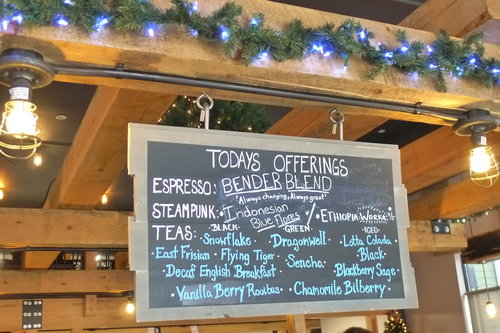 TODAYS OFFERINGS
ESPRESSO: BENDER BLEND
"Always changing, Always great"
STEAMPUNK: Indonesian Blue Flores / ETHIOPIA WORKA
TEAS: BLACK GREEN ICED
Snowflake Dragonwell Lotta Colada
East Frisian Flying Tiger Black
Decaf English Breakfast Sencha Blackberry Sage
Vanilla Berry Rooibus Chamomile Bilberry